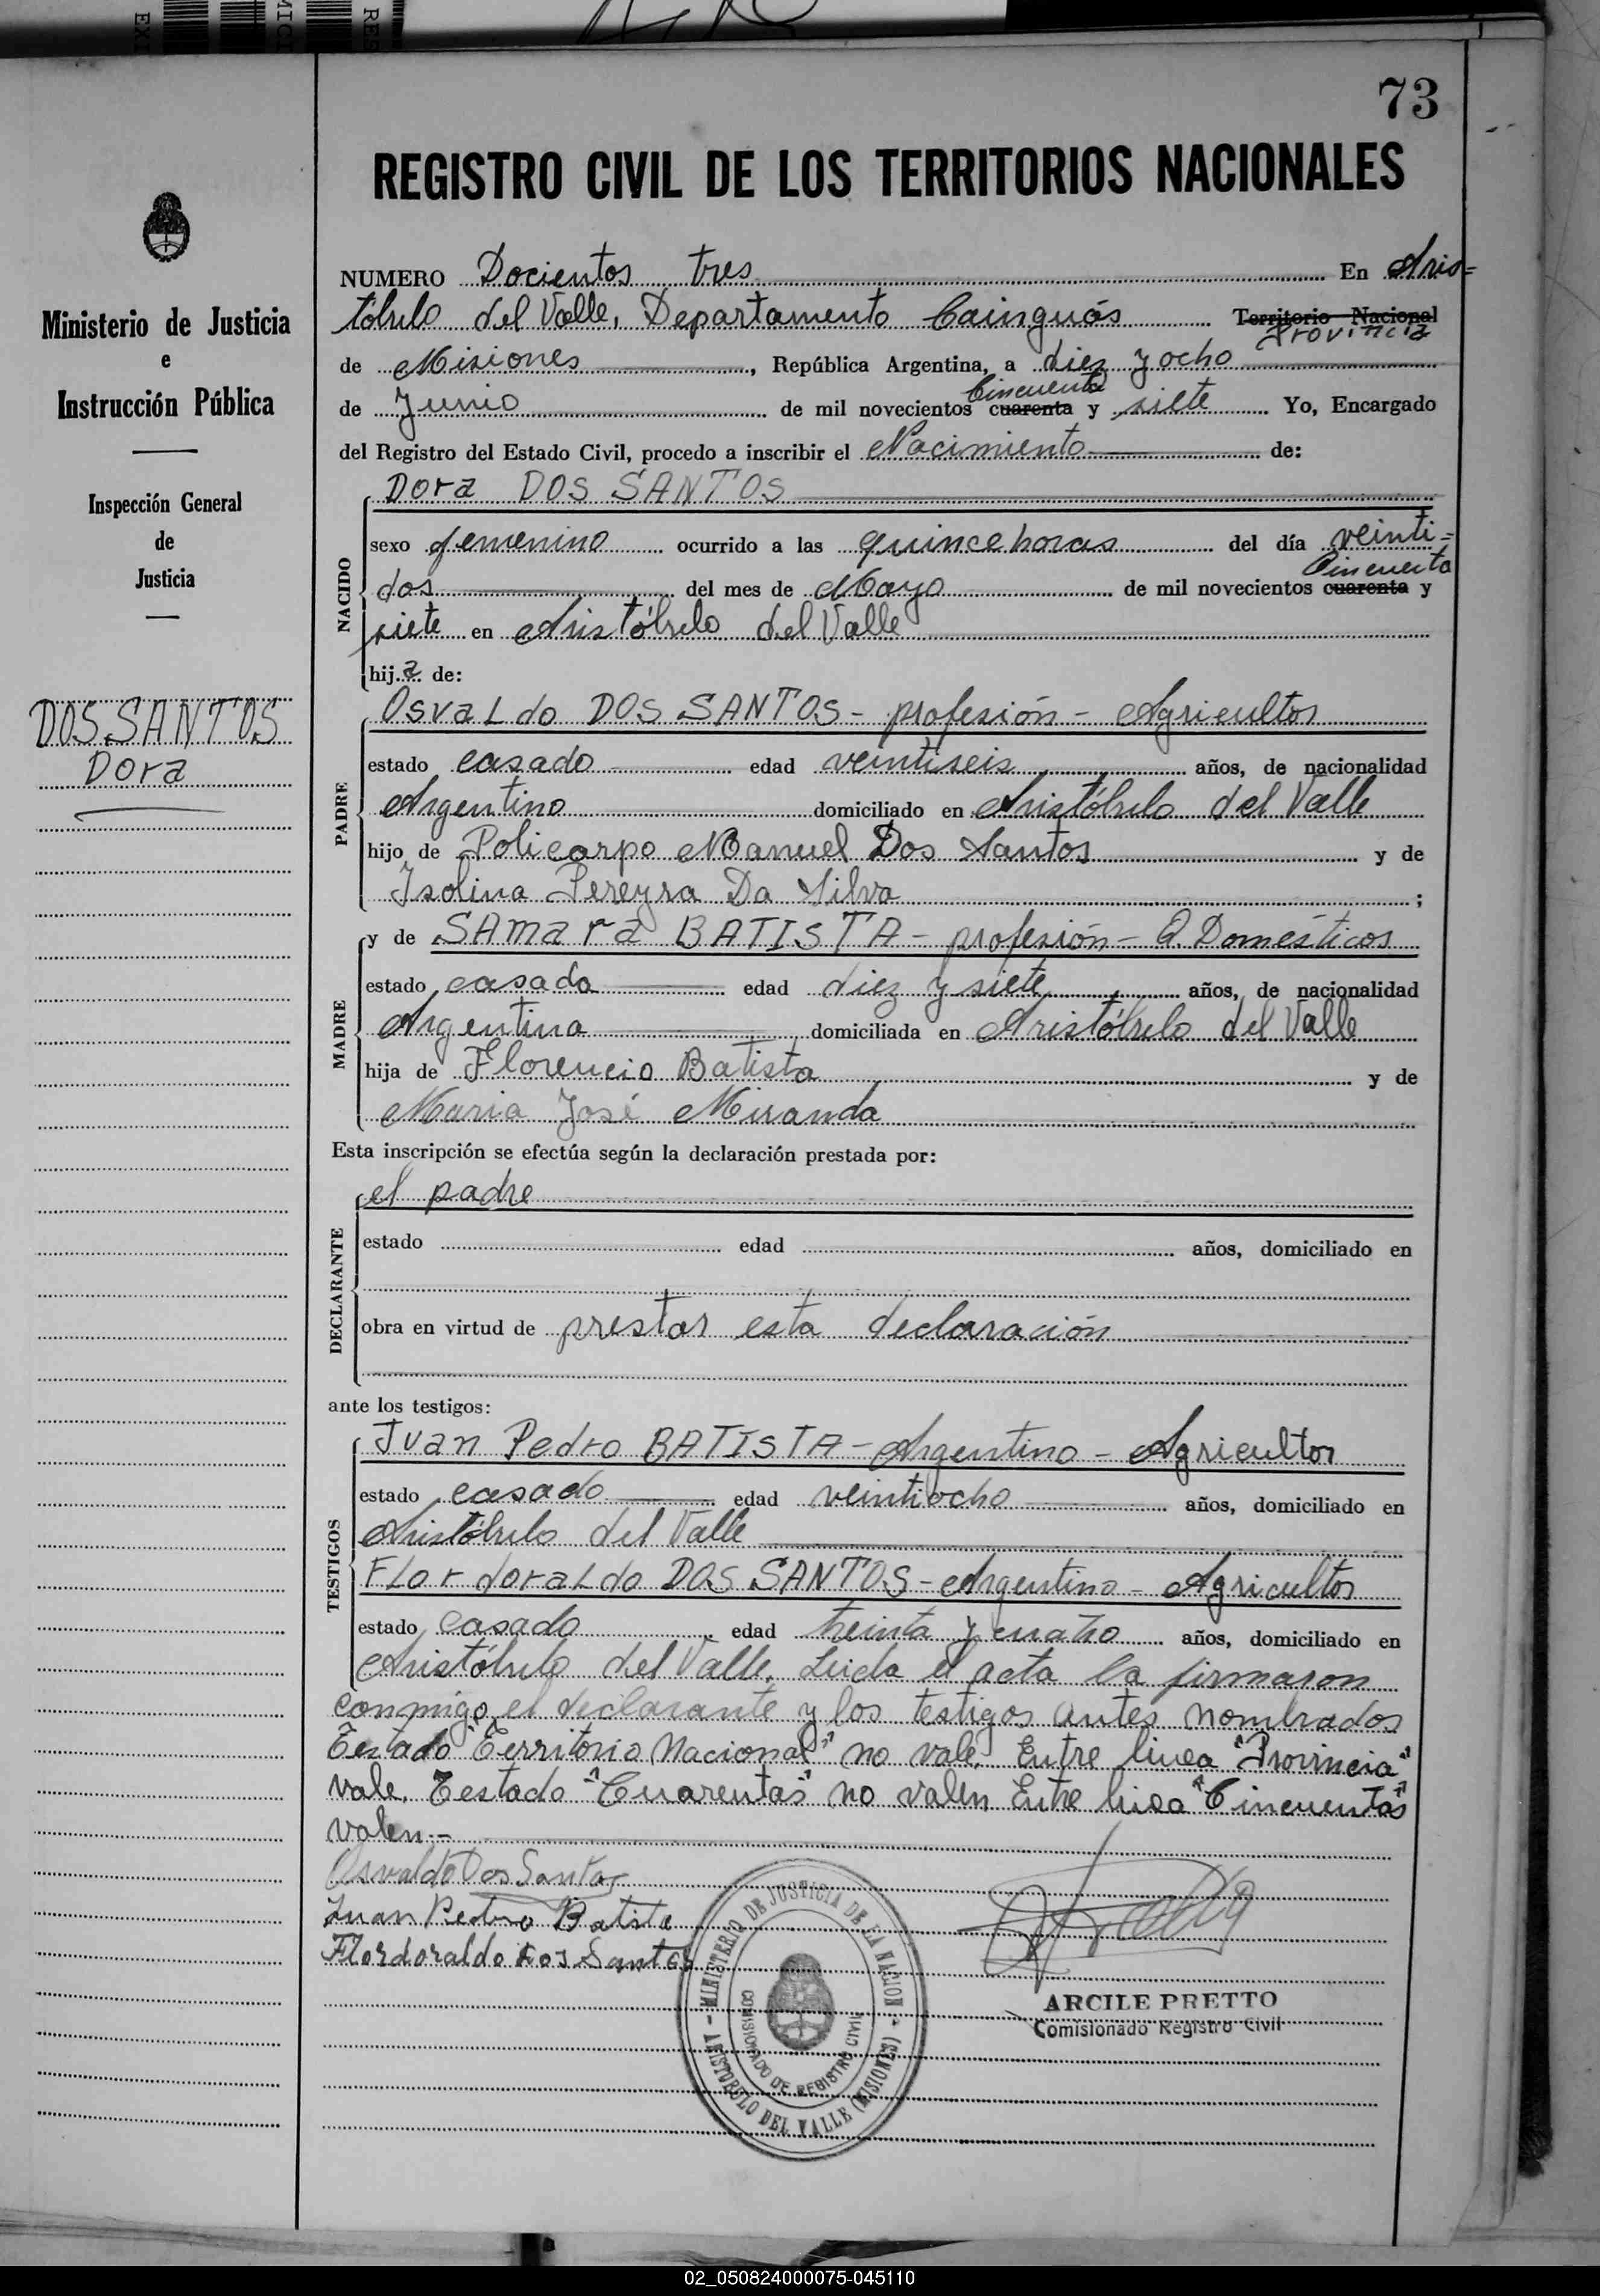 73
REGISTRO CIVIL DE LOS TERRITORIOS NACIONALES
Ministerio de Justicia
e
Instrucción Pública
Inspección General
de
Justicia
DOS SANTOS
Dora
NUMERO Docientos tres En Aris=
tóbulo del Valle, Departamento Cainguás Territorio Nacional
Provincia
de Misiones, República Argentina, a diez y ocho
Cincuenta
de Junio de mil novecientos cuarenta y siete Yo, Encargado
del Registro del Estado Civil, procedo a inscribir el Nacimiento de:
NACIDO
Dora DOS SANTOS
sexo femenino ocurrido a las quince horas del día veinti=
Cincuenta
dos del mes de Mayo de mil novecientos cuarenta y
siete en Aristóbulo del Valle
hija de:
PADRE
Osvaldo DOS SANTOS - profesión - Agricultor
estado casado edad veintiseis años, de nacionalidad
Argentino domiciliado en Aristóbulo del Valle
hijo de Policarpo Manuel Dos Santos y de
Isolina Pereyra Da Silva ;
MADRE
y de SAmara BATISTA - profesión - Q. Domésticos
estado casada edad diez y siete años, de nacionalidad
Argentina domiciliada en Aristóbulo del Valle
hija de Florencio Batista y de
Maria José Miranda
Esta inscripción se efectúa según la declaración prestada por:
DECLARANTE
el padre
estado edad años, domiciliado en
obra en virtud de prestar esta declaración
ante los testigos:
TESTIGOS
Juan Pedro BATISTA - Argentino - Agricultor
estado casado edad veintiocho años, domiciliado en
Aristóbulo del Valle
Flordoraldo DOS SANTOS - Argentino - Agricultor
estado casado edad treinta y cuatro años, domiciliado en
Aristóbulo del Valle. Leida el acta la firmaron
conmigo el declarante y los testigos antes nombrados
Testado "Territorio Nacional" no vale. Entre linea "Provincia"
vale. Testado "Cuarentas" no valen Entre linea "Cincuentas"
valen.-
Osvaldo Dos Santos
Juan Pedro Batista
Flordoraldo dos Santos
MINISTERIO DE JUSTICIA DE LA NACION
COMISIONADO DE REGISTRO CIVIL
ARISTOBULO DEL VALLE (MISIONES)
ARCILE PRETTO
Comisionado Registro Civil
02_050824000075-045110